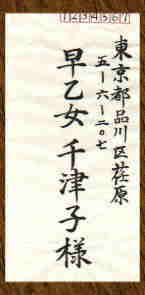 1234567
東京都品川区荏原
五-六-二〇七
早乙女 千津子様